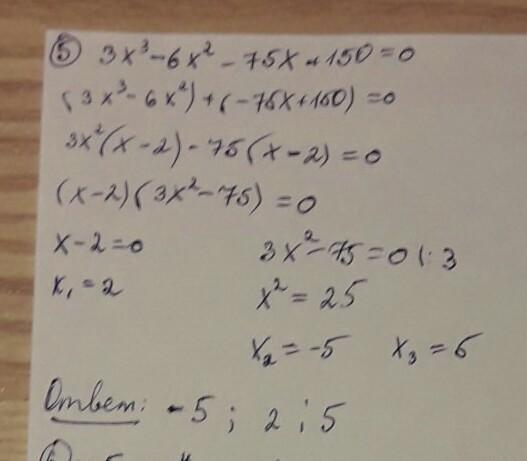 ⑤ 3x³-6x²-75x+150=0
(3x³-6x²)+(-75x+150)=0
3x²(x-2)-75(x-2)=0
(x-2)(3x²-75)=0
x-2=0 3x²-75=0 |:3
x₁=2 x²=25
x₂=-5 x₃=5
Ответ: -5; 2; 5